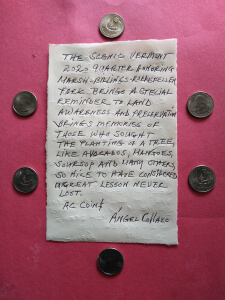 THE SCENIC VERMONT
2020 QUARTER HONORING
MARSH-BILLINGS-ROCKEFELLER
PARK BRINGS A SPECIAL
REMINDER TO LAND
AWARENESS AND PRESERVATION
BRINGS MEMORIES OF
THOSE WHO SOUGHT
THE PLANTING OF A TREE,
LIKE AVOCADOS, MANGOES,
SOURSOP AND MANY OTHERS
SO NICE TO HAVE CONSIDERED
A GREAT LESSON NEVER
LOST.
AC COIN$
ÁNGEL COLLAZO